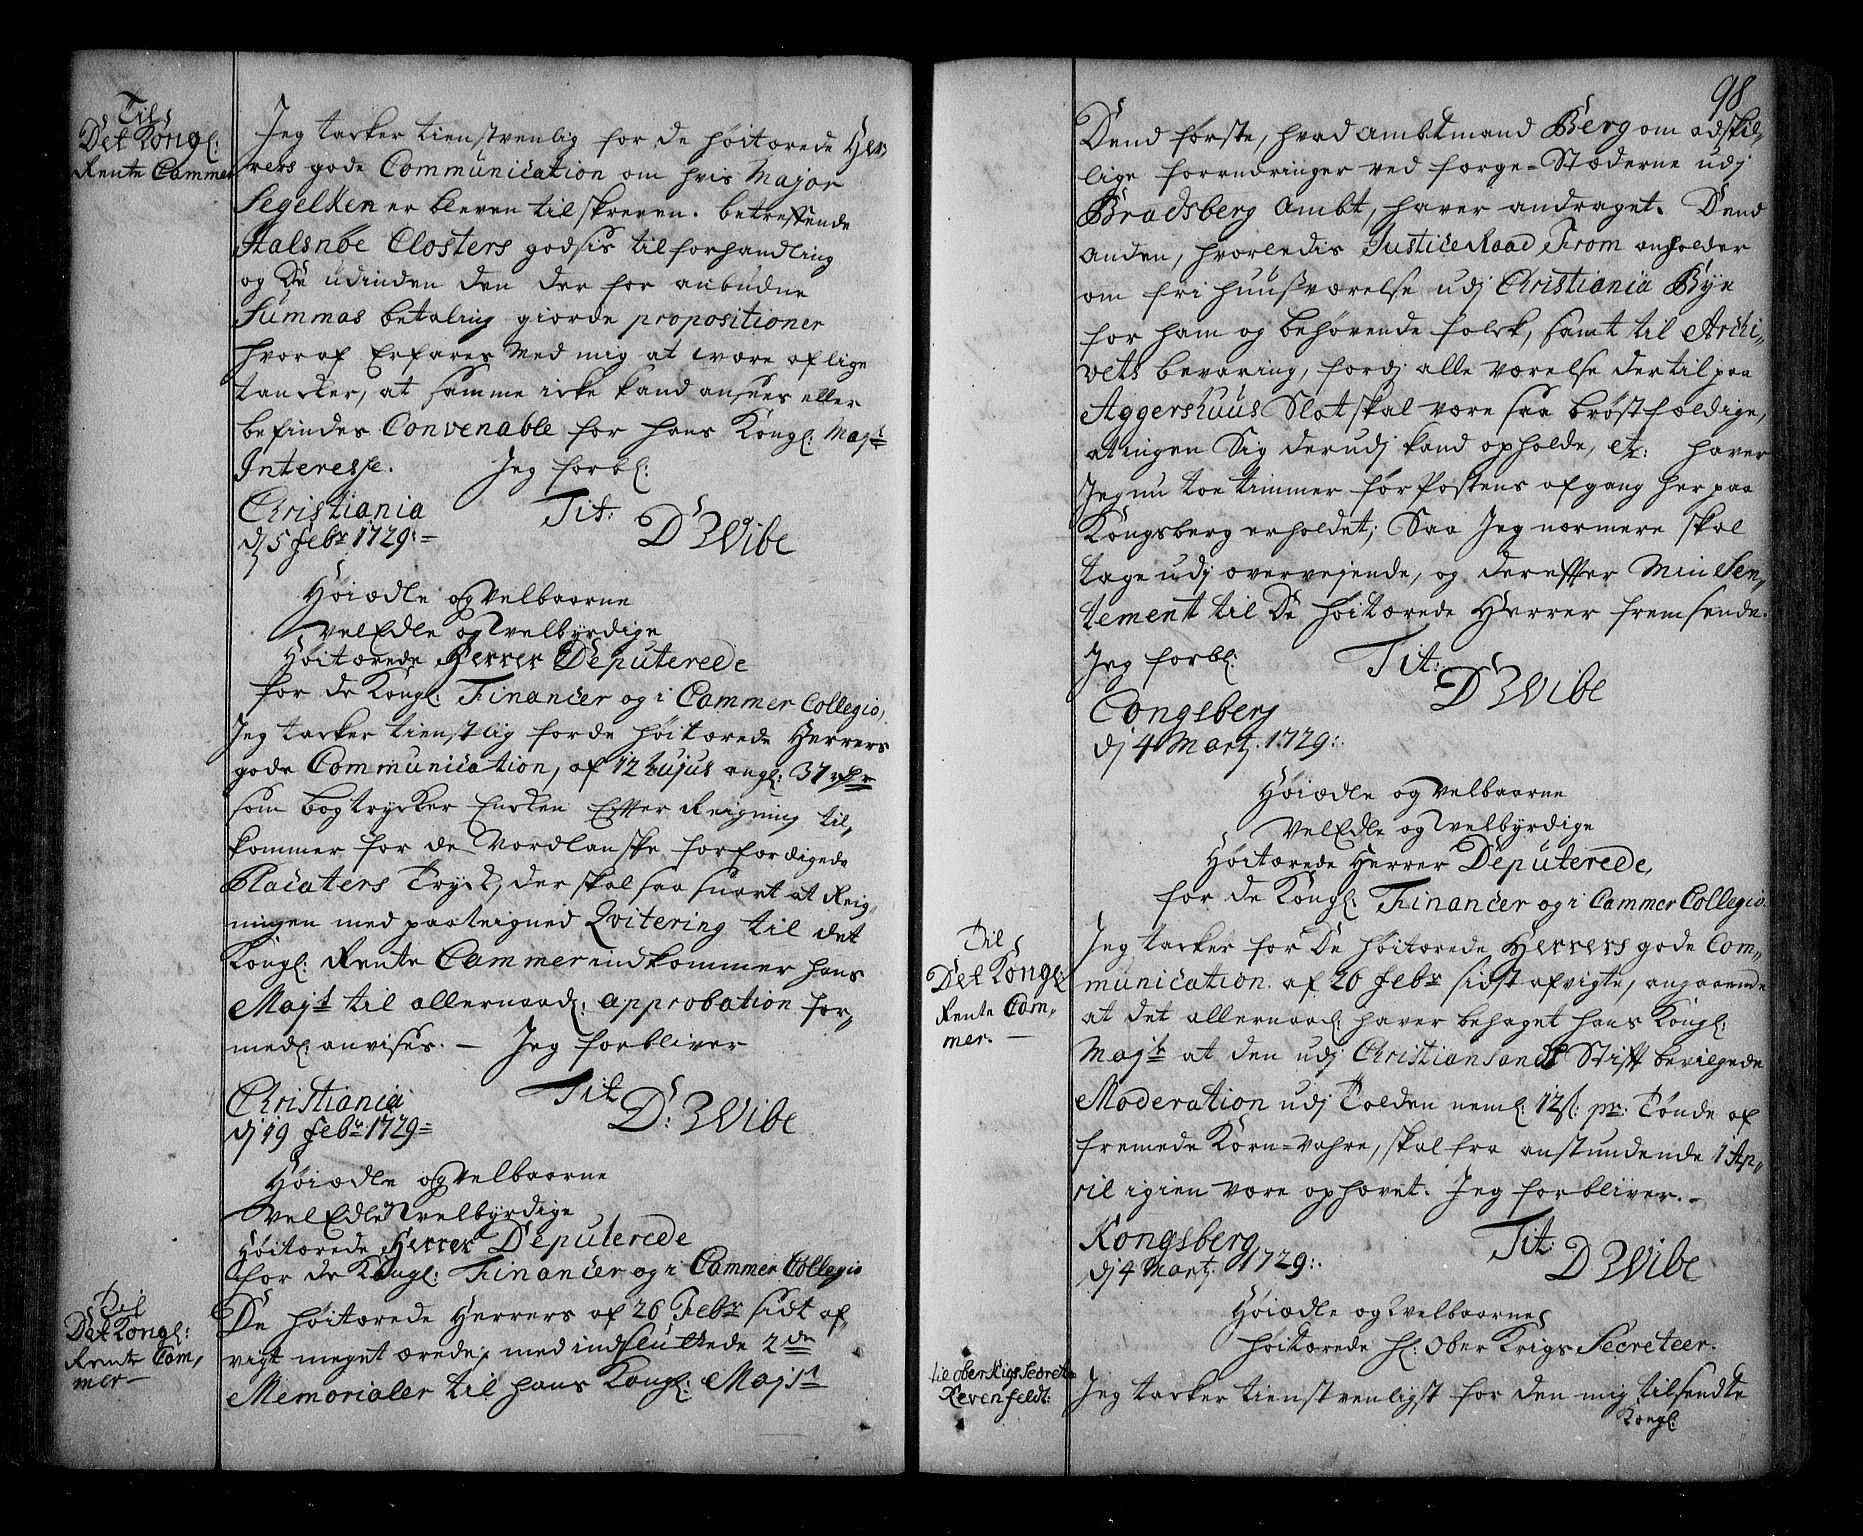 Til
Det Kongl:
Rente Cammer
Jeg tacker tienstvenlig for de høitærede Her„
rers gode Communication om hvis Major
Segelken er bleven tilskreven. betreffende
Halsnøe Closters godsis tilforhandling
og De udinden den der for anbudne
Summas betaling giorde propositioner
hvoraf Erfares Med mig at være af lige
tancker, at samme icke kand ansees eller
befindes Convenable for hans Kongl: Majts
Interesse. Jeg forbl:
Christiania Tit:
dj 5 febr 1729:= D Wibe
Høiædle og Velbaarne
VelEdle og velbyrdige
Høitærede Herrer Deputerede
for de Kongl: Financer og i Cammer Collegio,
Jeg tacker tienstlig for de høitærede Herrers
gode Communication, af 12 hujus angl: 37 rdlr
som bogtrycker Encken Efter Reigning til„
kommer for de Nordlanske forfærdigede
Placaters Tryck, der skal saa snart at Reig„
ningen med paateigned Qvitering til det
Kongl: Rente Cammer indkommer hans
Majt til allernaad: approbation for„
medl: anvises. — Jeg forbliver
Christiania Tit
dj 19 febr 1729= D: Wibe
Høiædle og Velbaarne
VelEdle velbyrdige
Høitærede Herrer Deputerede
for de Kongl: Financer og i Cammer Collegio
Til
Det Kongl:
Rente Cam„
mer—
De høitærede Herrers af 26 Febr sidt af„
vigt meget ærede, med indsluttede 2de
Memorialer til hans Kongl: Majst
98
Dend første, hvad Ambtmand Berg om adskil„
lige forendringer ved færge=Stæderne udj
Bradsberg Ambt, haver andraget. Dend
anden, hvorledis JusticeRaad From anholder
om fri huusværelse udj Christiania Bye
for ham og behøvende folck, samt til Archi„
vets bevaring, fordj alle værelse dertil paa
Aggershuus Slot skal være saa brøstfældige,
at ingen Sig derudj kand opholde, etc: haver
Jeg nu toe timmer før Postens afgang her paa
Kongsberg erholdet; Saa Jeg nærmere skal
tage udj overvejende, og derefter Min Sen„
tement til De høitærede Herrer fremsende.
Jeg forbl: Tit:
D Wibe
Congsberg
dj 4 Martj. 1729:.
Høiædle og Velbaarne
VelEdle og velbyrdige
Høitærede Herrer Deputerede,
for de Kongl: Financer og i Cammer Collegio
Til
Det Kongl:
Rente Cam„
mer. —
Jeg tacker for De høitærede Herrers gode Com„
munication. af 26 febr sidst afvigte, angaaende
at det allernaad: haver behaget hans Kongl:
Majt at den udj Christiansands Stift bevilgede
Moderation udj Tolden neml: 12 s: pr: Tønde af
fremede Korn=Vahre, skal fra anstundende 1 Ap„
ril igien være ophævet. Jeg forbliver. –
Kongsberg Tit:
dj 4 Martj 1729:. D Wibe
Høiædle og velbaarne
Høitærede Hr: Ober Krigs Secreteer.
til ober Krigs Secrete
Revenfeldt:
Jeg tacker tienstvenligst for den mig tilsendte
Kongl: